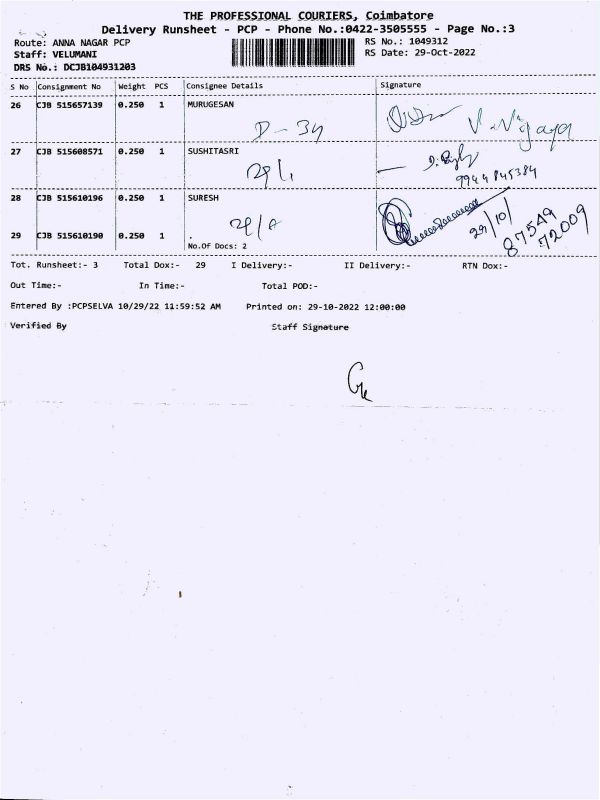 THE PROFESSIONAL COURIERS, Coimbatore
Delivery Runsheet - PCP - Phone No.:0422-3505555 - Page No.:3
Route: ANNA NAGAR PCP RS No.: 1049312
Staff: VELUMANI RS Date: 29-Oct-2022
DRS No.: DCJB104931203
S No Consignment No Weight PCS Consignee Details Signature
26 CJB 515657139 0.250 1 MURUGESAN
D - 34 V.Vijaya
27 CJB 515608571 0.250 1 SUSHITASRI
9944845384
28 CJB 515610196 0.250 1 SURESH
29/10/
87549
72009
29 CJB 515610190 0.250 1 .
No.Of Docs: 2
Tot. Runsheet:- 3 Total Dox:- 29 I Delivery:- II Delivery:- RTN Dox:-
Out Time:- In Time:- Total POD:-
Entered By :PCPSELVA 10/29/22 11:59:52 AM Printed on: 29-10-2022 12:00:00
Verified By Staff Signature